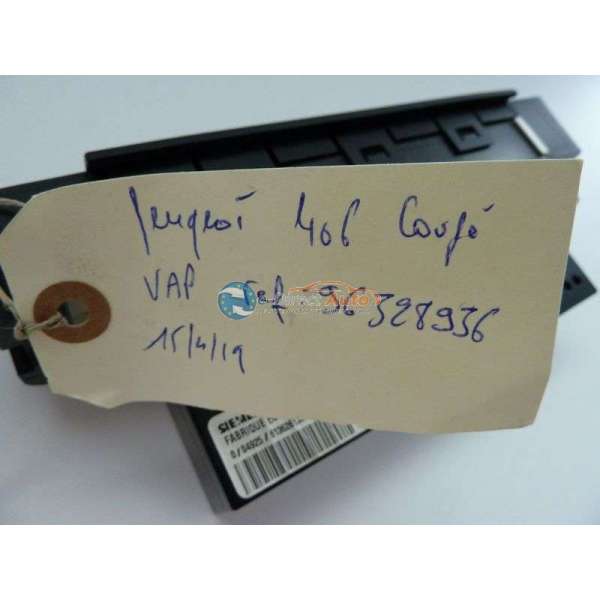 Peugeot 406 Coupé
VAP ref. 96328936
15/4/19
SIEME
FABRIQUE E
0/04925/